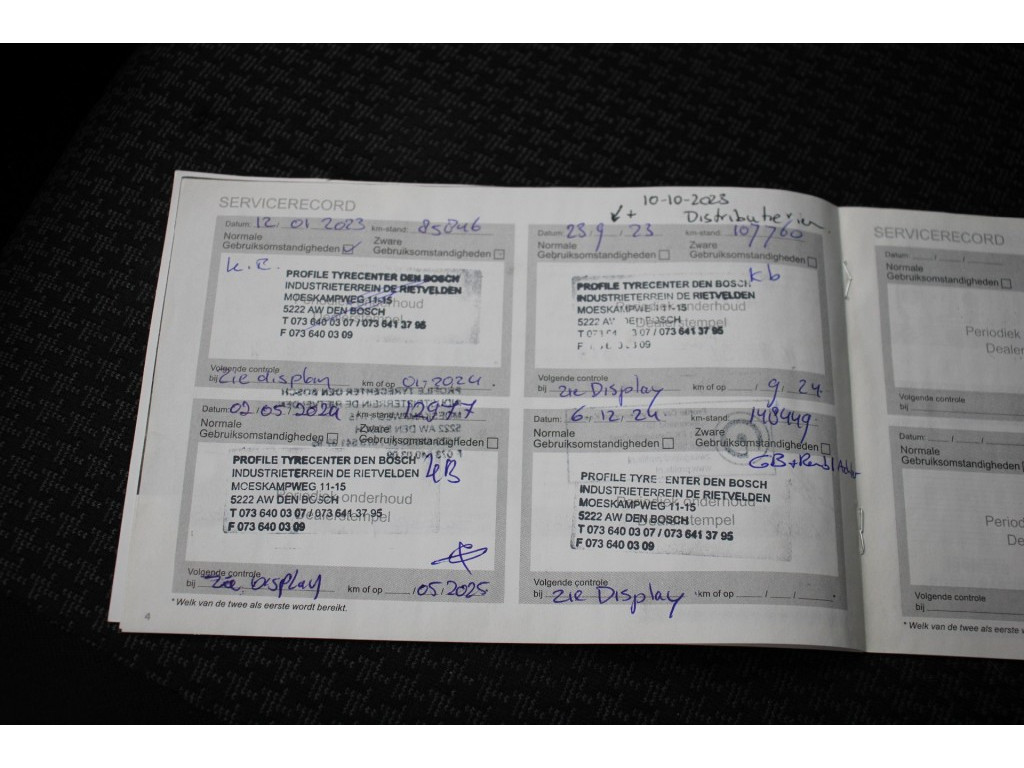 SERVICERECORD
10-10-2023
+ Distributieriem
Datum: 12.01.2023 km-stand: 85846
Normale Gebruiksomstandigheden
Zware Gebruiksomstandigheden
K.B.
PROFILE TYRECENTER DEN BOSCH
INDUSTRIETERREIN DE RIETVELDEN
MOESKAMPWEG 11-15
5222 AW DEN BOSCH
T 073 640 03 07 / 073 641 37 95
F 073 640 03 09
Volgende controle
bij Zie display km of op 01.2024.
Datum: 23.9.23 km-stand: 107760
Normale
Gebruiksomstandigheden
Zware
Gebruiksomstandigheden
Kb
PROFILE TYRECENTER DEN BOSCH
INDUSTRIETERREIN DE RIETVELDEN
MOESKAMPWEG 11-15
5222 A DEN BOSCH
07 / 073 641 37 95
F 03 09
Periodiek onderhoud
Dealerstempel
Volgende controle
bij Zie Display km of op / 9.24
Datum: 02.05.2024 km-stand:
Normale
Gebruiksomstandigheden
Zware
Gebruiksomstandigheden
PROFILE TYRECENTER DEN BOSCH
INDUSTRIETERREIN DE RIETVELDEN
MOESKAMPWEG 11-15
5222 AW DEN BOSCH
T 073 640 03 07 / 073 641 37 95
F 073 640 03 09
Periodiek onderhoud
Dealerstempel
Volgende controle
bij Zie Display km of op /05.2025
Datum: 6.12.24 km-stand: 148449
Normale
Gebruiksomstandigheden
Zware
Gebruiksomstandigheden
GB+Rem
PROFILE TYRECENTER DEN BOSCH
INDUSTRIETERREIN DE RIETVELDEN
MOESKAMPWEG 11-15
5222 AW DEN BOSCH
T 073 640 03 07 / 073 641 37 95
F 073 640 03 09
Periodiek onderhoud
Dealerstempel
Volgende controle
bij Zie Display km of op / /
* Welk van de twee als eerste wordt bereikt.
4
SERVICERECORD
Datum: / /
Normale
Gebruiksomstandigheden
Periodiek
Dealer
Volgende controle
bij
Datum: / /
Normale
Gebruiksomstandigheden
Period
De
Volgende controle
bij
* Welk van de twee als eerste